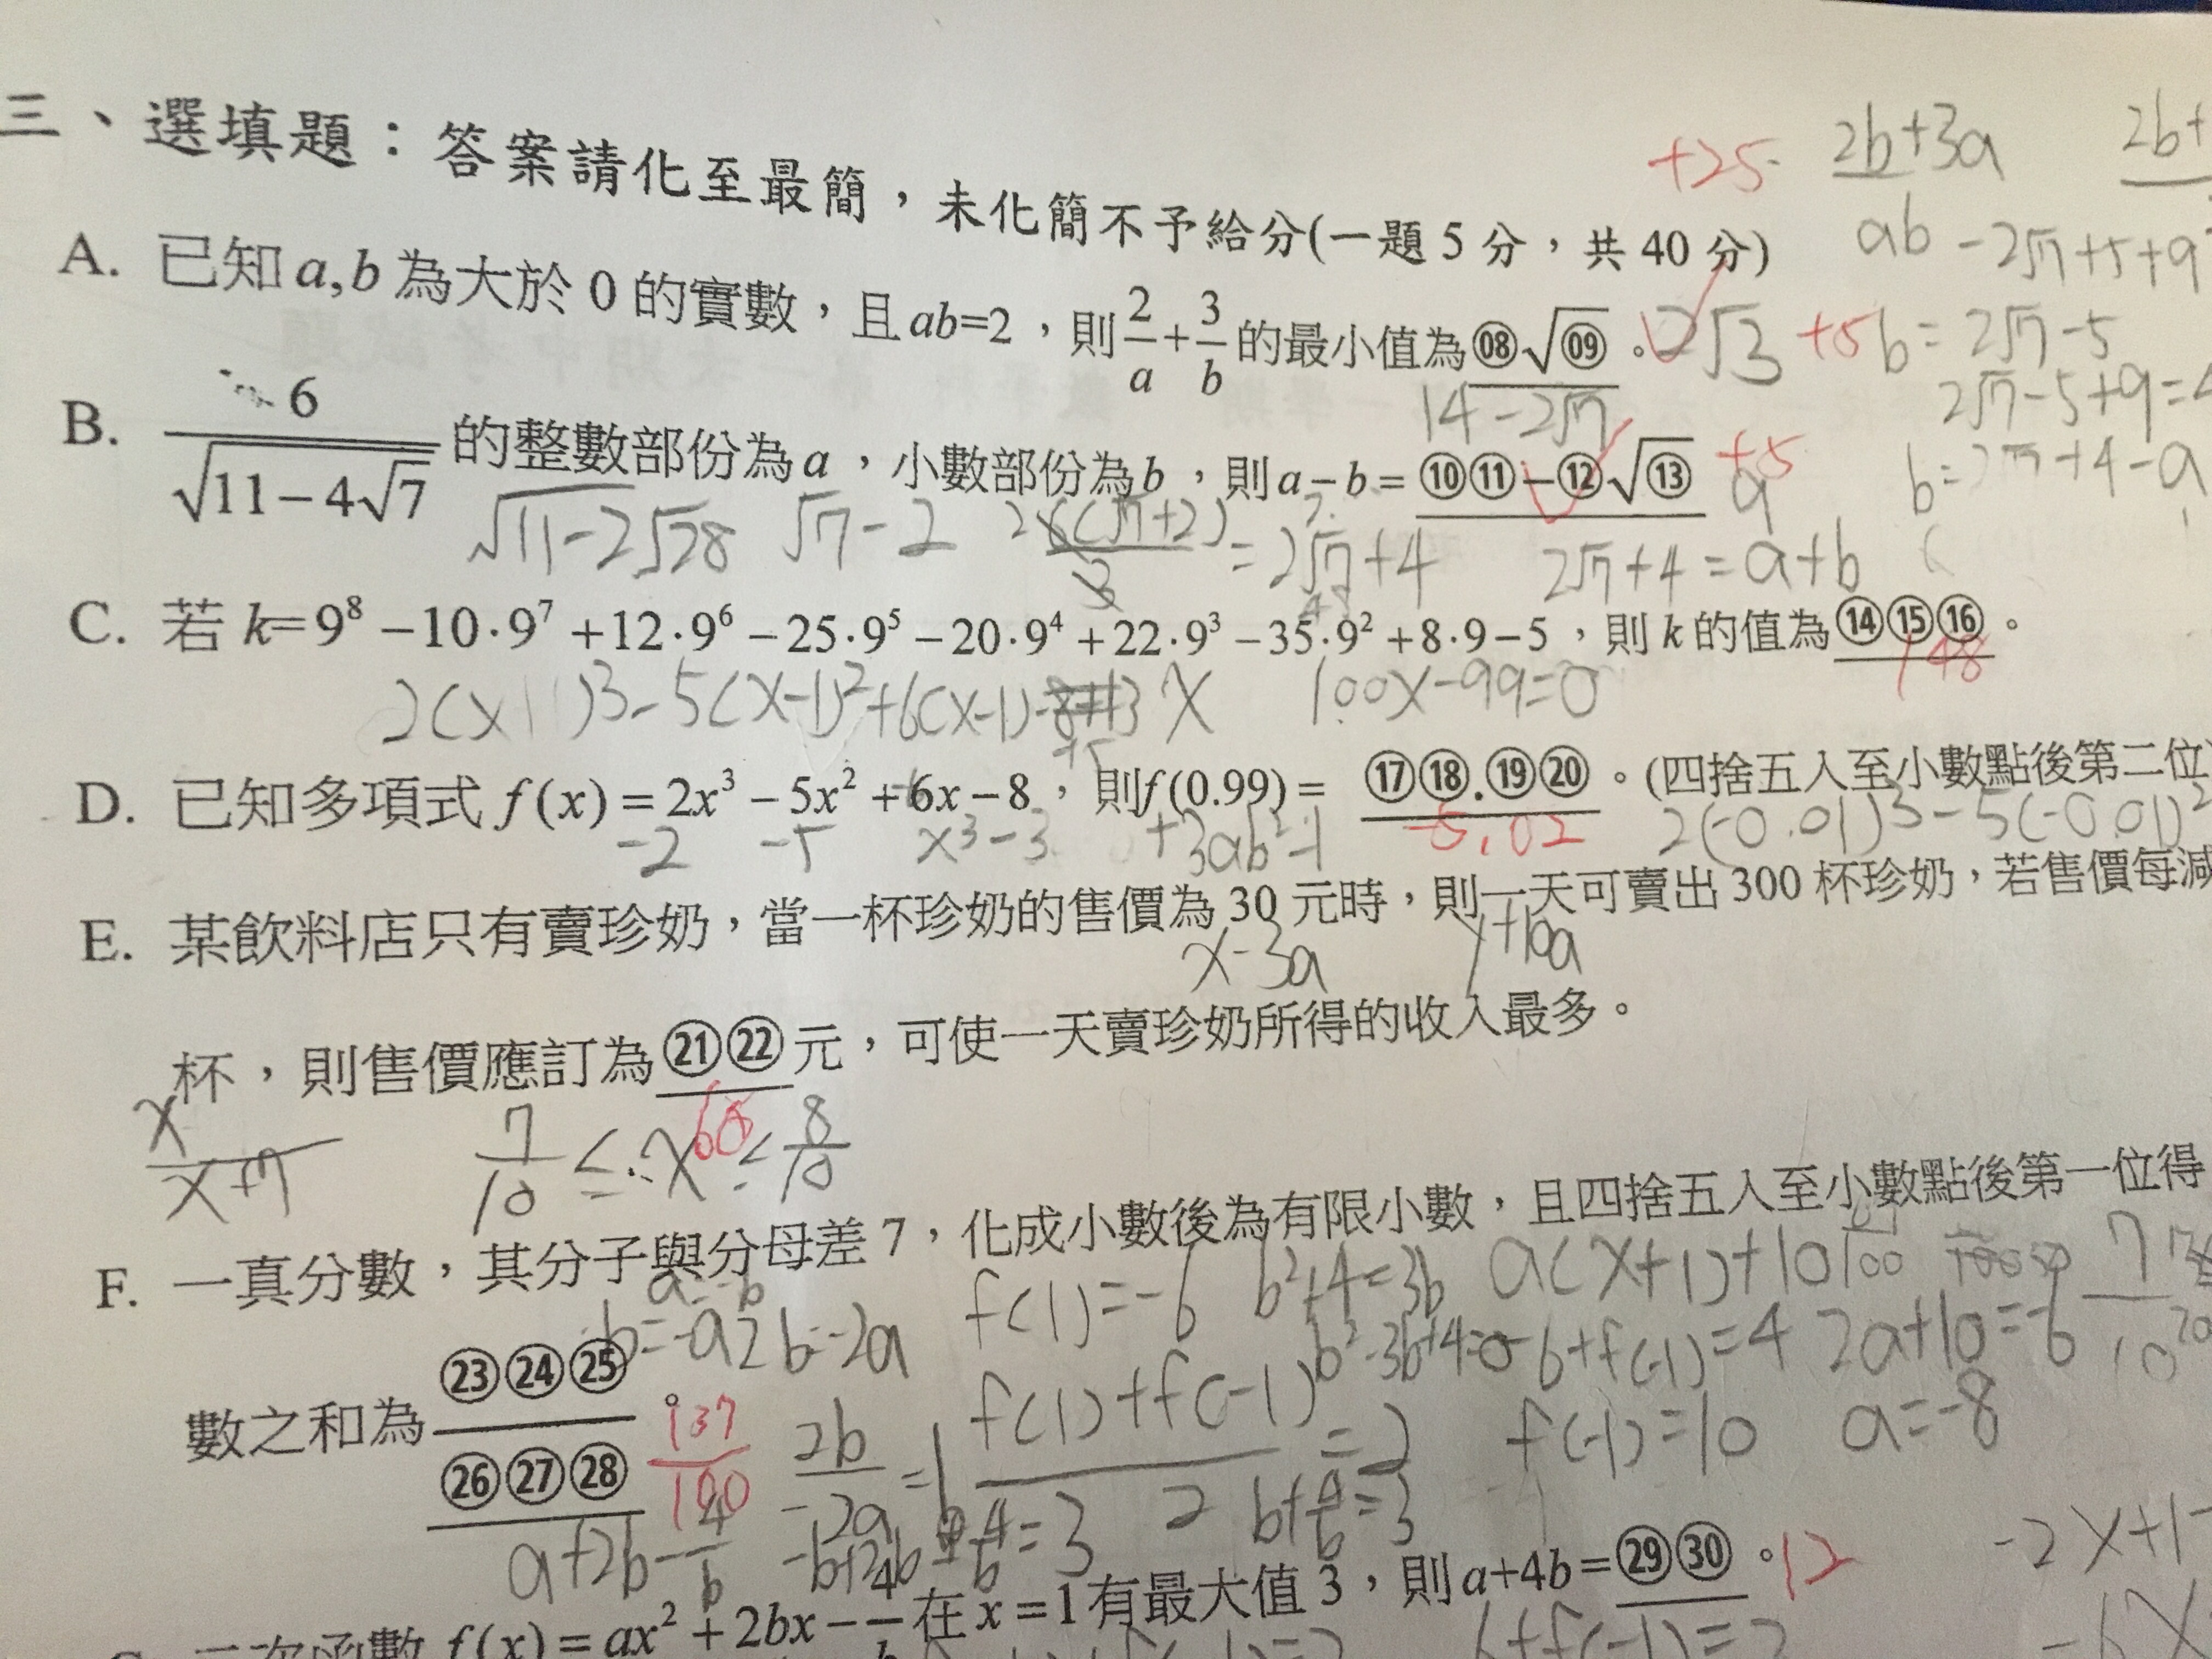 三、選填題：答案請化至最簡，未化簡不予給分(一題5分，共40分)
+25
2b+3a
ab
2b+
-2√7+5+9
A. 已知a,b為大於0的實數，且ab=2，則2/a+3/b的最小值為⑧√⑨。
2√3 +5
b=2√7-5
2√7-5+9=4
14-2√7
B. 6/√(11-4√7)的整數部份為a，小數部份為b，則a-b=⑩⑪-⑫√⑬
+5
9
b=2√7+4-9
√11-2√28 √7-2 2 6(√7+2)/3 =2√7+4 2√7+4=a+b
C. 若k=9⁸-10·9⁷+12·9⁶-25·9⁵-20·9⁴+22·9³-35·9²+8·9-5，則k的值為⑭⑮⑯。
148
2(x-1)³-5(x-1)²+6(x-1) X 100x-99=0
D. 已知多項式f(x)=2x³-5x²+6x-8，則f(0.99)=⑰⑱.⑲⑳。(四捨五入至小數點後第二位)
-5.02
-2 -5 x³-3 +3ab²-1 2(-0.01)³-5(-0.01)²
E. 某飲料店只有賣珍奶，當一杯珍奶的售價為30元時，則一天可賣出300杯珍奶，若售價每減
x-3a y+10a
杯，則售價應訂為㉑㉒元，可使一天賣珍奶所得的收入最多。
60
x/x+7 7/10≤x≤8/10
F. 一真分數，其分子與分母差7，化成小數後為有限小數，且四捨五入至小數點後第一位得
a=-b f(1)=-6 b²+4=3b a(x+1)+10
b=-a 2b=-2a b²-3b+4=0 -6+f(-1)=4 2a+10=-6
數之和為㉓㉔㉕/㉖㉗㉘。
137/100
2b/-2a=1 f(1)+f(-1)/2=2 f(-1)=10 a=-8
a+2b-4/b b+4/b=3
-2x+1
二次函數f(x)=ax²+2bx-4/b在x=1有最大值3，則a+4b=㉙㉚。
12
6+f(-1)=2